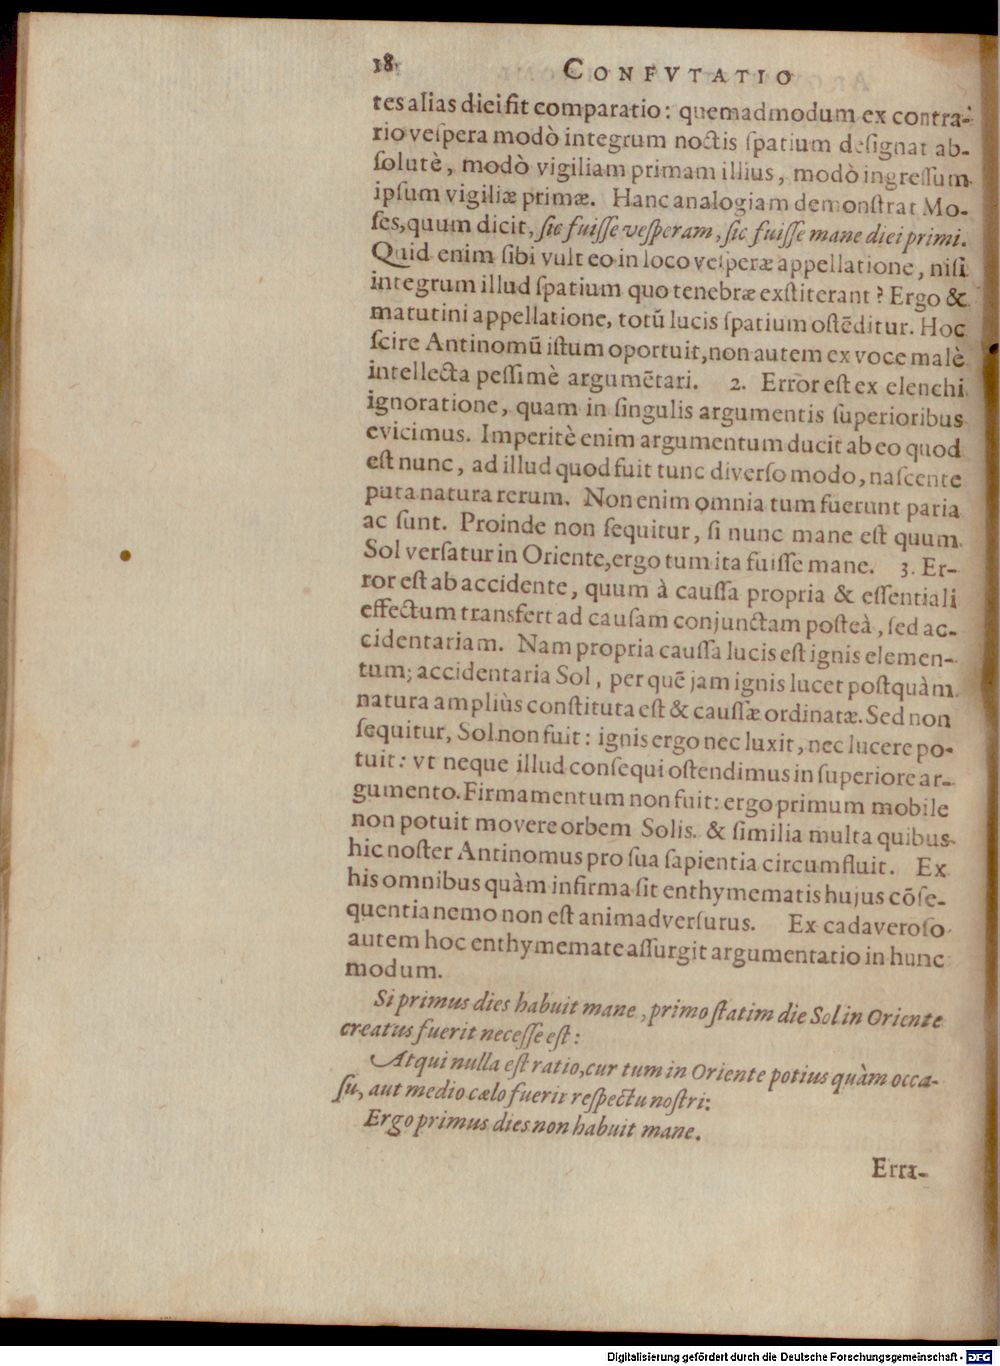 18 CONFVTATIO
tes alias diei fit comparatio: quemadmodum ex contra-
rio veſpera modò integrum noctis ſpatium deſignat ab-
ſolutè, modò vigiliam primam illius, modò ingreſſum
ipſum vigiliæ primæ. Hanc analogiam demonſtrat Mo-
ſes, quum dicit, ſic fuiſſe veſperam, ſic fuiſſe mane diei primi.
Quid enim ſibi vult eo in loco veſperæ appellatione, niſi
integrum illud ſpatium quo tenebræ exſtiterant? Ergo &
matutini appellatione, totū lucis ſpatium oſtēditur. Hoc
ſcire Antinomū iſtum oportuit, non autem ex voce malè
intellecta peſſimè argumētari. 2. Error eſt ex elenchi
ignoratione, quam in ſingulis argumentis ſuperioribus
evicimus. Imperitè enim argumentum ducit ab eo quod
eſt nunc, ad illud quod fuit tunc diverſo modo, naſcente
puta natura rerum. Non enim omnia tum fuerunt paria
ac ſunt. Proinde non ſequitur, ſi nunc mane eſt quum
Sol verſatur in Oriente, ergo tum ita fuiſſe mane. 3. Er-
ror eſt ab accidente, quum à cauſſa propria & eſſentiali
effectum transfert ad cauſam conjunctam poſteà, ſed ac-
cidentariam. Nam propria cauſſa lucis eſt ignis elemen-
tum; accidentaria Sol, per quē jam ignis lucet poſtquàm
natura ampliùs conſtituta eſt & cauſſæ ordinatæ. Sed non
ſequitur, Sol non fuit: ignis ergo nec luxit, nec lucere po-
tuit: vt neque illud conſequi oſtendimus in ſuperiore ar-
gumento. Firmamentum non fuit: ergo primum mobile
non potuit movere orbem Solis. & ſimilia multa quibus
hic noſter Antinomus pro ſua ſapientia circumfluit. Ex
his omnibus quàm infirma ſit enthymematis hujus cōſe-
quentia nemo non eſt animadverſurus. Ex cadaveroſo
autem hoc enthymemate aſſurgit argumentatio in hunc
modum.
Si primus dies habuit mane, primo ſtatim die Sol in Oriente
creatus fuerit neceſſe eſt:
Atqui nulla eſt ratio, cur tum in Oriente potius quàm occa-
ſu, aut medio cælo fuerit reſpectu noſtri:
Ergo primus dies non habuit mane.
Erra-
Digitalisierung gefördert durch die Deutsche Forschungsgemeinschaft - DFG